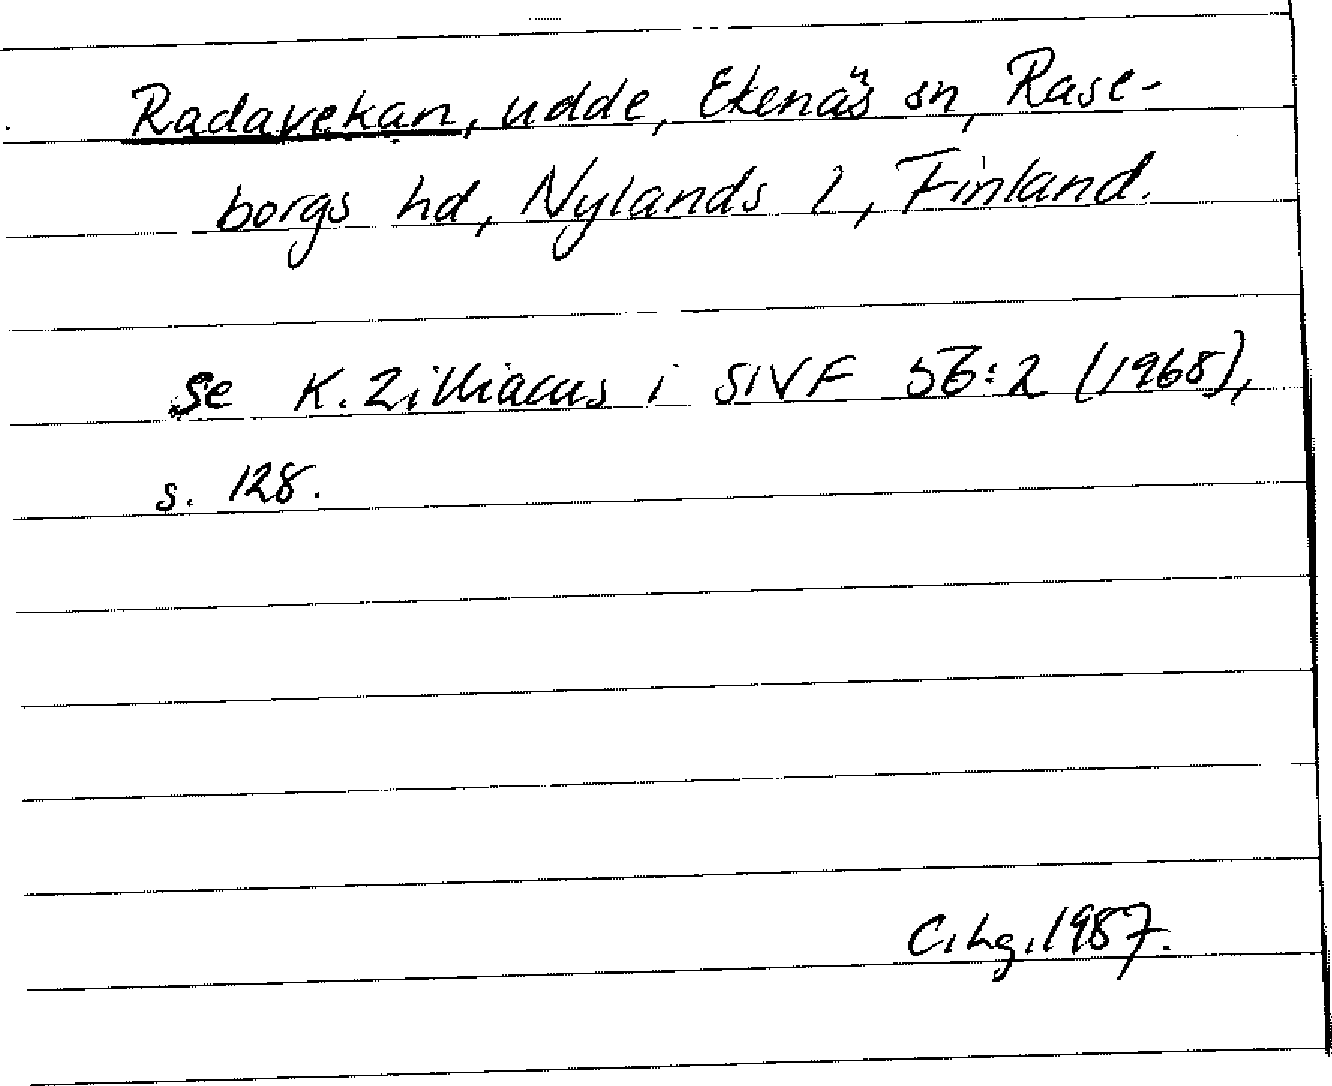 Radavekan, udde, Ekenäs sn, Rase-
borgs hd, Nylands l, Finland.
Se K. Zilliacus i SNF 56:2 (1968),
s. 128.
C. Lg. 1987.